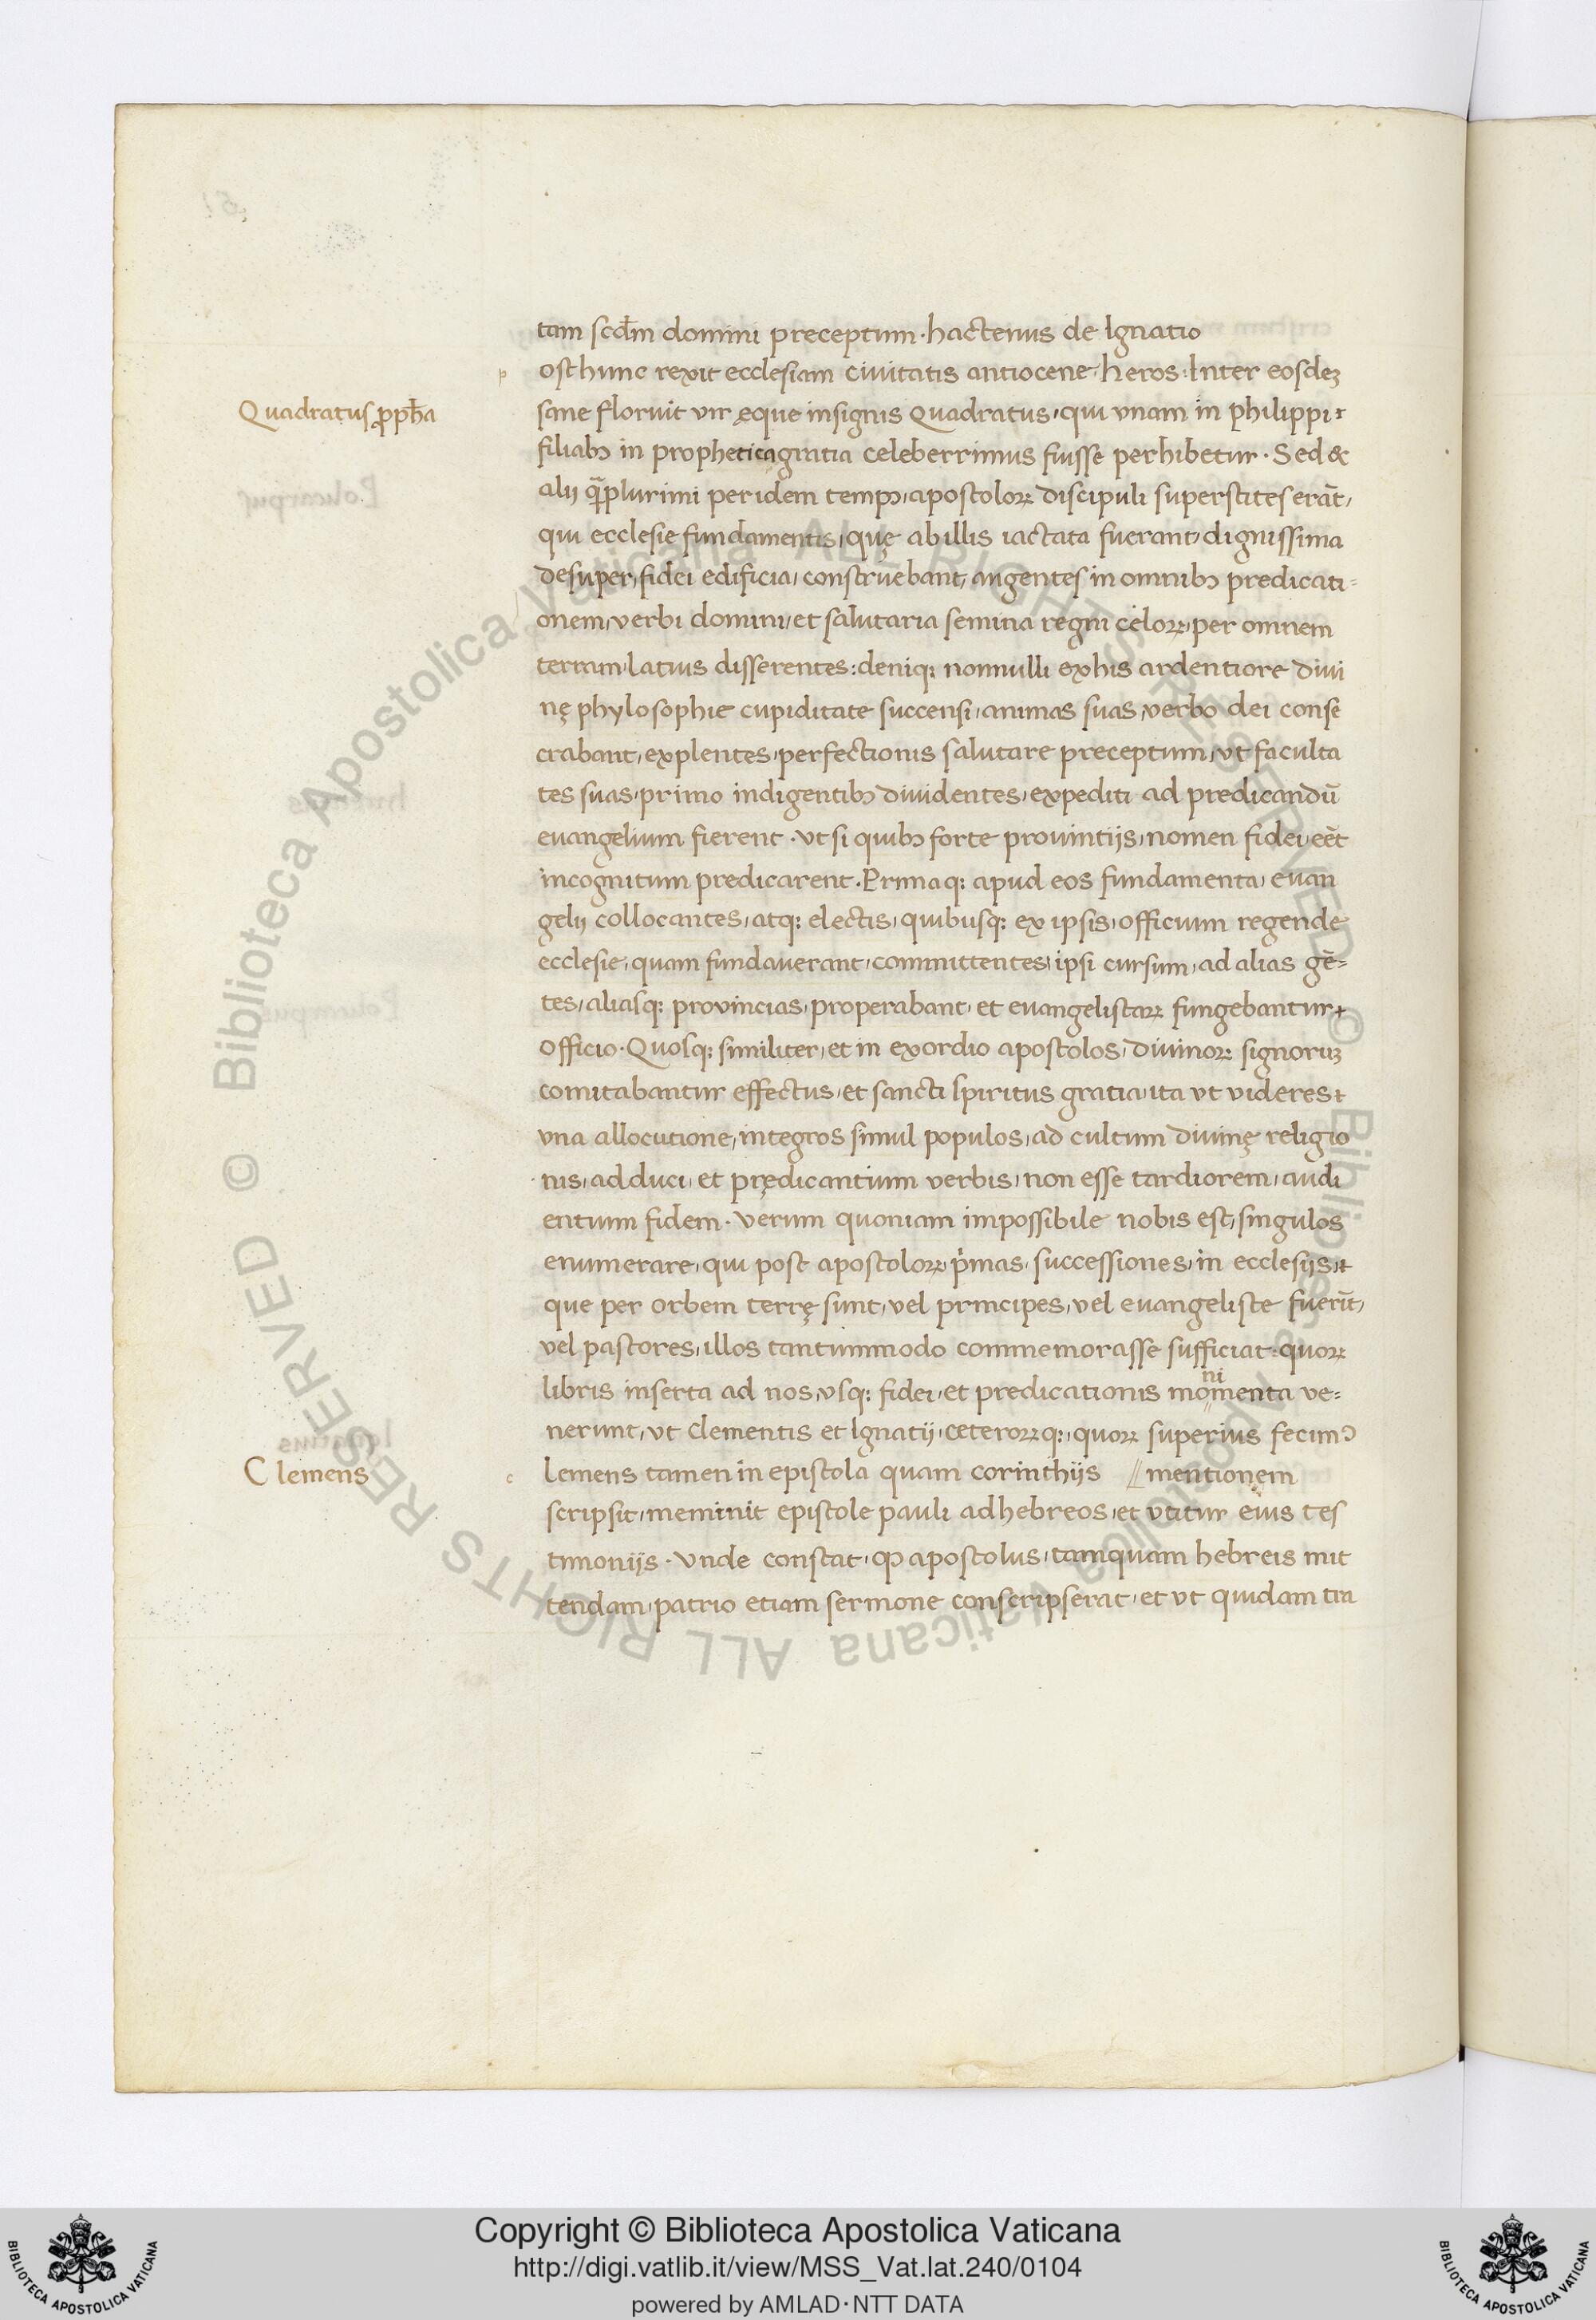 tam scd̄m domini preceptum · hactenus de Ignatio
p osthunc rexit ecclesiam ciuitatis antiocene, heros: Inter eosdeꝫ
Quadratus ꝓpħa
sane floruit vir ęque insignis Quadratus, qui vnam in philippi
filiabꝫ in prophetica gratia celeberrimus fuisse perhibetur · Sed &
alij q̄ꝫplurimi per idem tempꝫ, apostoloꝝ discipuli superstites erāt,
qui ecclesie fundamentis, quę ab illis iactata fuerant, dignissima
desuper, fidei edificia, construebant, augentes in omnibꝫ predicati=
onem, verbi domini, et salutaria semina regni celoꝝ, per omnem
terram, latius disserentes: deniqꝫ nonnulli ex his ardentiore diui
nę phylosophie cupiditate succensi, animas suas, verbo dei conse
crabant, explentes, perfectionis salutare preceptum, vt faculta
tes suas, primo indigentibꝫ diuidentes, expediti ad predicandū
euangelium fierent · vt si quibꝫ forte prouintijs, nomen fidei, eēt
incognitum predicarent · Primaqꝫ apud eos fundamenta, euan
gelij collocantes, atqꝫ electis, quibusqꝫ ex ipsis, officium regende
ecclesie, quam fundauerant, committentes, ipsi cursum, ad alias gē=
tes, aliasqꝫ prouincias, properabant, et euangelistaꝝ fungebantur
officio · Quosqꝫ similiter, et in exordio apostolos, diuinoꝝ signoruꝫ
comitabantur effectus, et sancti spiritus gratia, ita vt videres
vna allocutione, integros simul populos, ad cultum diuinę religio
nis, adduci, et prędicantium verbis, non esse tardiorem, audi
entium fidem · verum quoniam impossibile nobis est, singulos
enumerare, qui post apostoloꝝ, pͥmas, successiones, in ecclesijs,
que per orbem terrę sunt, vel principes, vel euangeliste fuerūt,
vel pastores, illos tantummodo commemorasse sufficiat, quoꝝ
ni
libris inserta ad nos, vsqꝫ fidei, et predicationis momenta ve=
nerunt, vt clementis et Ignatij, ceteroꝝqꝫ, quoꝝ superius fecimꝰ
Clemens
c lemens tamen in epistola quam corinthijs // mentionem
scripsit, meminit epistole pauli ad hebreos, et vtitur eius tes
timonijs · vnde constat, ꝙ apostolus, tamquam hebreis mit
tendam, patrio etiam sermone conscripserat, et vt quidam tra
© Biblioteca Apostolica Vaticana ALL RIGHTS RESERVED
© Biblioteca Apostolica Vaticana ALL RIGHTS RESERVED
Copyright © Biblioteca Apostolica Vaticana
http://digi.vatlib.it/view/MSS_Vat.lat.240/0104
powered by AMLAD · NTT DATA
BIBLIOTECA APOSTOLICA VATICANA
BIBLIOTECA APOSTOLICA VATICANA